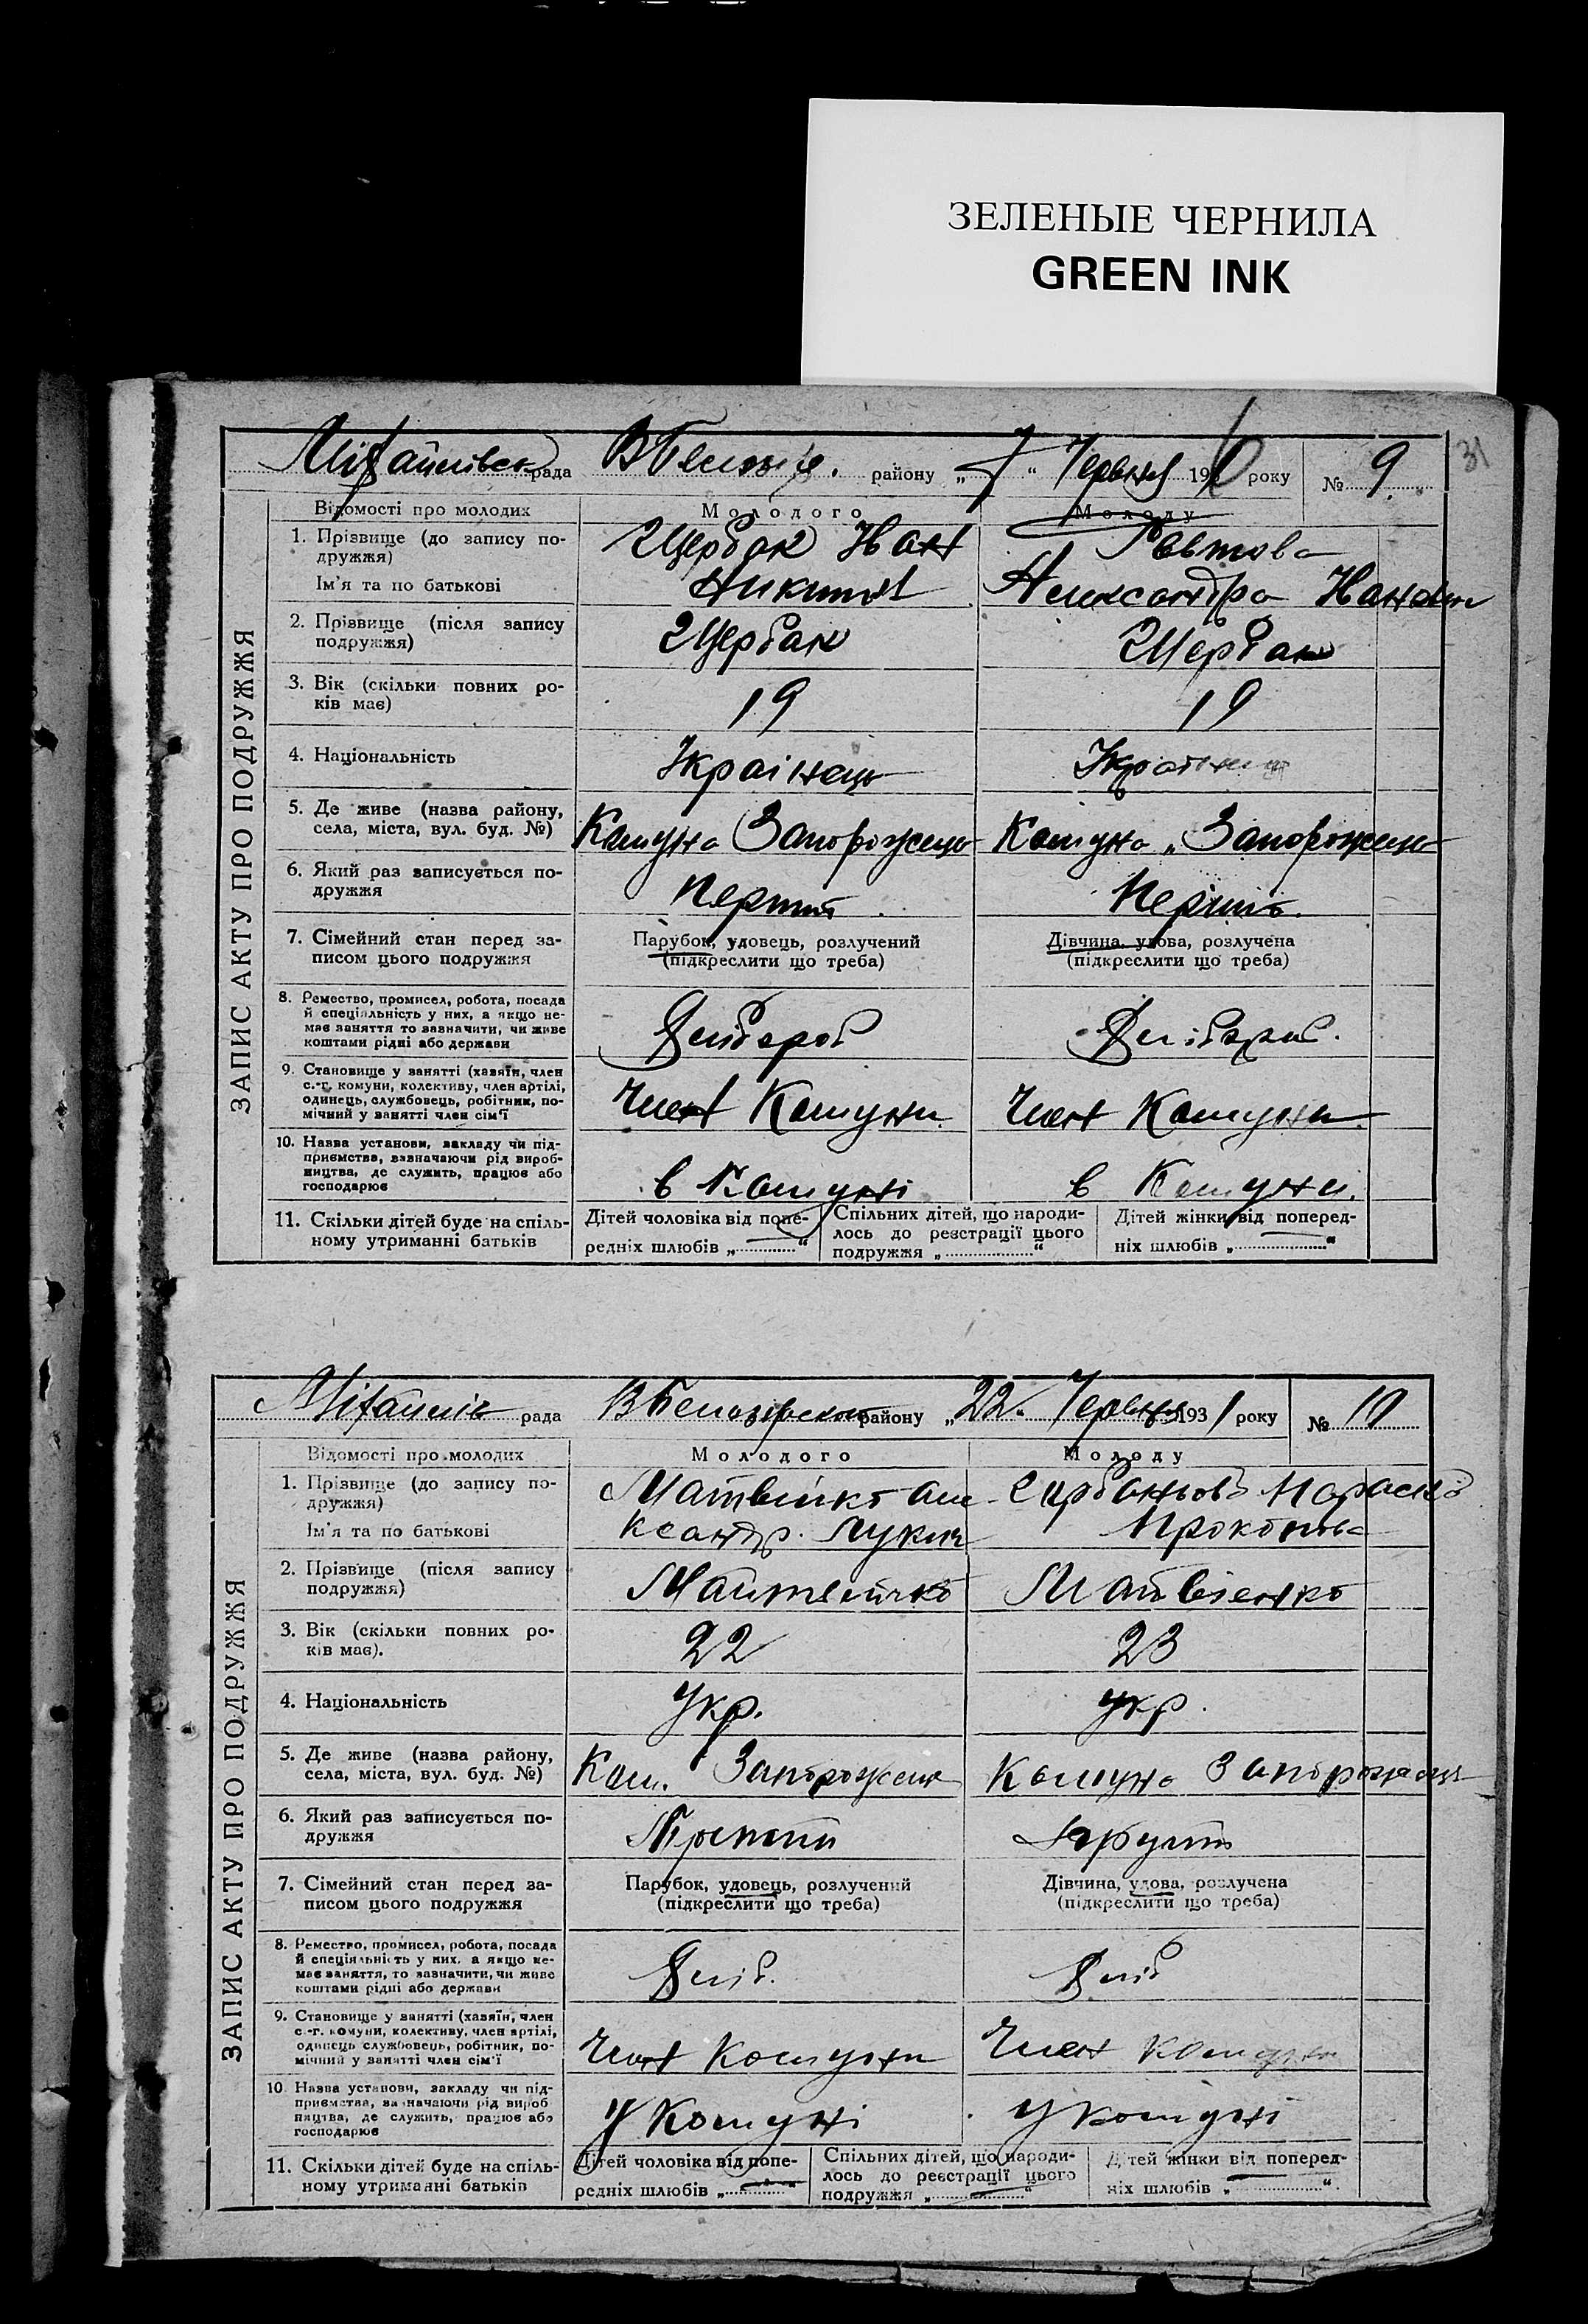 ЗЕЛЕНЫЕ ЧЕРНИЛА
GREEN INK
31
рада району „7“ Червня 193 року № 9.
ЗАПИС АКТУ ПРО ПОДРУЖЖЯ
Відомості про молодих Молодого Молоду
1. Прізвище (до запису по-
дружжя)
Щербак Иван
Ім'я та по батькові
Александра
2. Прізвище (після запису
подружжя)
Щербак Щербак
3. Вік (скільки повних ро-
ків має)
19 19
4. Національність
Украінець
5. Де живе (назва району,
села, міста, вул. буд. №)
Комуна Запорожець Комуна „Запорожець
6. Який раз записується по-
дружжя
7. Сімейний стан перед за-
писом цього подружжя
Парубок, удовець, розлучений
(підкреслити що треба)
Дівчина, удова, розлучена
(підкреслити що треба)
8. Ремество, промисел, робота, посада
й спеціяльність у них, а якщо не-
має заняття то зазначити, чи живе
коштами рідні або держави
9. Становище у занятті (хазяїн, член
с.-г. комуни, колективу, член артілі,
одинець, службовець, робітник, по-
мічний у занятті член сім'ї
Член Комуни Член Комуни
10. Назва установи, закладу чи під-
приємства, зазначаючи рід вироб-
ництва, де служить, працює або
господарює
в Комуні в Комуни.
11. Скільки дітей буде на спіль-
ному утриманні батьків
Дітей чоловіка від попе-
редніх шлюбів „ “
Спільних дітей, що народи-
лось до реєстрації цього
подружжя „ “
Дітей жінки від поперед-
ніх шлюбів „ “
рада району „22“ Червня 1931 року № 10
ЗАПИС АКТУ ПРО ПОДРУЖЖЯ
Відомості про молодих Молодого Молоду
1. Прізвище (до запису по-
дружжя)
Ім'я та по батькові
2. Прізвище (після запису
подружжя)
Матвієнко
3. Вік (скільки повних ро-
ків має).
22 23
4. Національність
Укр. укр.
5. Де живе (назва району,
села, міста, вул. буд. №)
Ком. Запорожець Комуна Запорожець
6. Який раз записується по-
дружжя
7. Сімейний стан перед за-
писом цього подружжя
Парубок, удовець, розлучений
(підкреслити що треба)
Дівчина, удова, розлучена
(підкреслити що треба)
8. Ремество, промисел, робота, посада
й спеціяльність у них, а якщо не-
має заняття, то зазначити, чи живе
коштами рідні або держави
9. Становище у занятті (хазяїн, член
с.-г. комуни, колективу, член артілі,
одинець службовець, робітник, по-
мічний у занятті член сім'ї
Член Комуни Член комуни
10 Назва установи, закладу чи під-
приємства, зазначаючи рід вироб
ництва, де служить, працює або
господарює
у Комуні у комуні
11. Скільки дітей буде на спіль-
ному утриманні батьків
Дітей чоловіка від попе-
редніх шлюбів „ “
Спільних дітей, що народи-
лось до реєстрації цього
подружжя „ “
Дітей жінки від поперед-
ніх шлюбів „ “